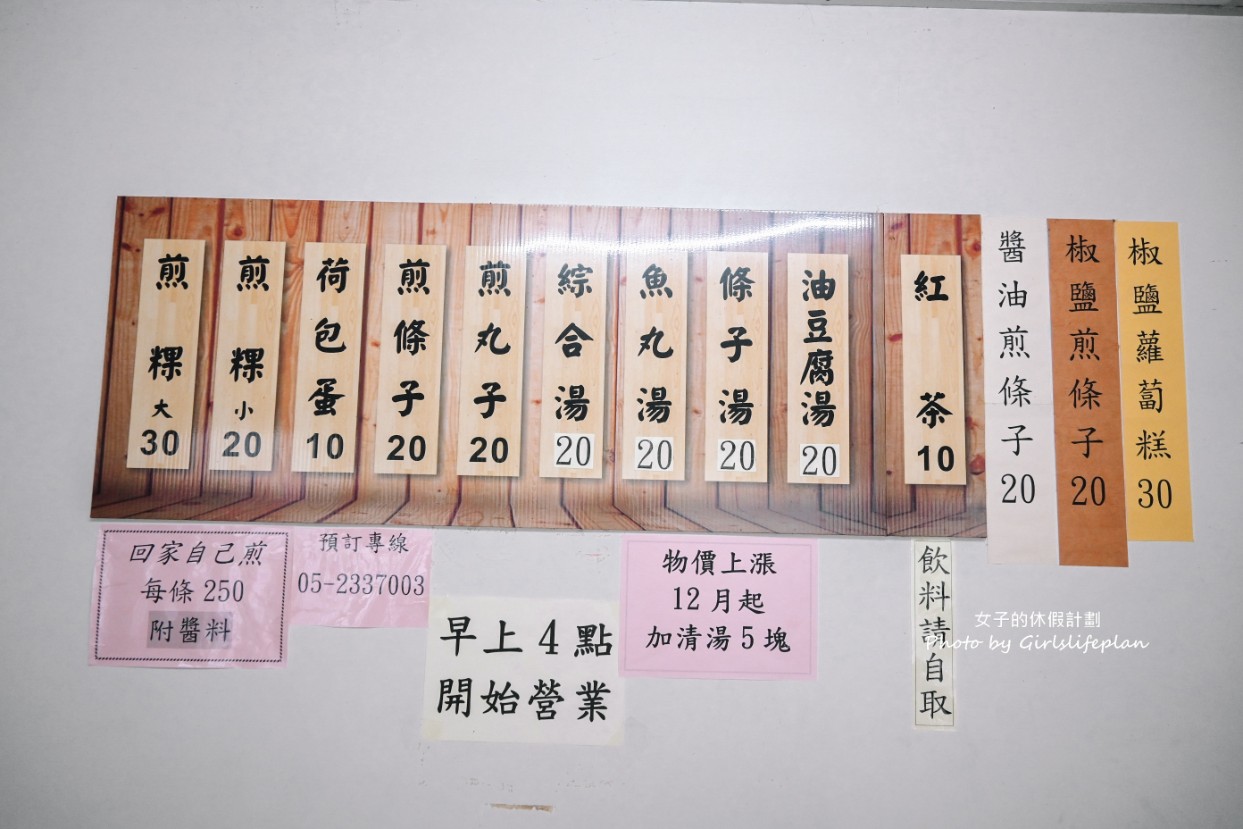 煎粿大30
煎粿小20
荷包蛋10
煎條子20
煎丸子20
綜合湯20
魚丸湯20
條子湯20
油豆腐湯20
紅茶10
醬油煎條子20
椒鹽煎條子20
椒鹽蘿蔔糕30
回家自己煎
每條250
附醬料
預訂專線
05-2337003
早上4點
開始營業
物價上漲
12月起
加清湯5塊
飲料請自取
女子的休假計劃
Photo by Girlslifeplan